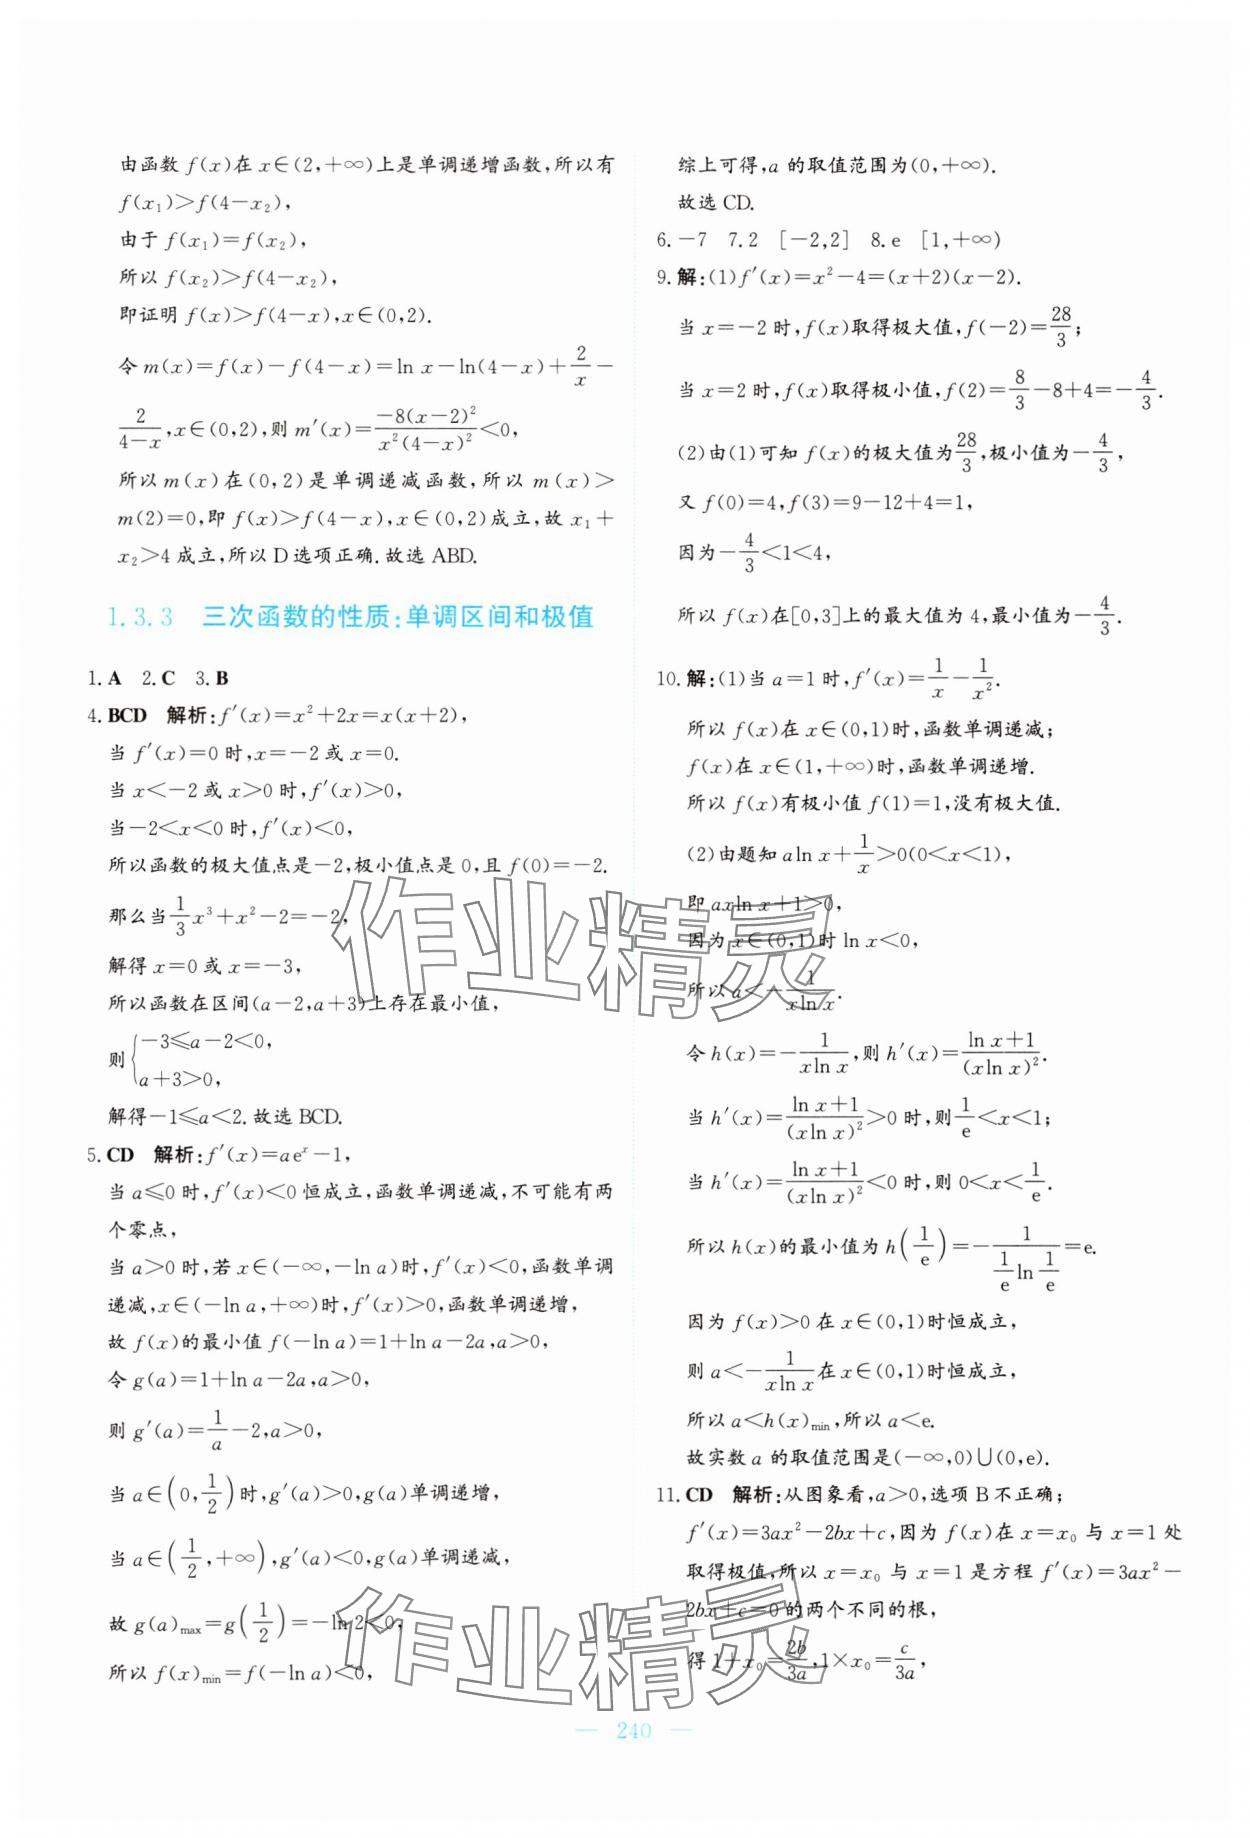 由函数 f(x)在 x∈(2,+∞)上是单调递增函数,所以有
f(x₁)>f(4-x₂),
由于 f(x₁)=f(x₂),
所以 f(x₂)>f(4-x₂),
即证明 f(x)>f(4-x),x∈(0,2).
令 m(x)=f(x)-f(4-x)=ln x-ln(4-x)+2/x-
2/(4-x),x∈(0,2),则 m′(x)=-8(x-2)²/(x²(4-x)²)<0,
所以 m(x)在(0,2)是单调递减函数,所以 m(x)>
m(2)=0,即 f(x)>f(4-x),x∈(0,2)成立,故 x₁+
x₂>4 成立,所以 D 选项正确.故选 ABD.
1.3.3 三次函数的性质:单调区间和极值
1. A 2. C 3. B
4. BCD 解析:f′(x)=x²+2x=x(x+2),
当 f′(x)=0 时,x=-2 或 x=0.
当 x<-2 或 x>0 时,f′(x)>0,
当-2<x<0 时,f′(x)<0,
所以函数的极大值点是-2,极小值点是 0,且 f(0)=-2.
那么当 1/3 x³+x²-2=-2,
解得 x=0 或 x=-3,
所以函数在区间(a-2,a+3)上存在最小值,
则 { -3≤a-2<0,
a+3>0,
解得-1≤a<2.故选 BCD.
5. CD 解析:f′(x)=aeˣ-1,
当 a≤0 时,f′(x)<0 恒成立,函数单调递减,不可能有两
个零点,
当 a>0 时,若 x∈(-∞,-ln a)时,f′(x)<0,函数单调
递减,x∈(-ln a,+∞)时,f′(x)>0,函数单调递增,
故 f(x)的最小值 f(-ln a)=1+ln a-2a,a>0,
令 g(a)=1+ln a-2a,a>0,
则 g′(a)=1/a-2,a>0,
当 a∈(0,1/2)时,g′(a)>0,g(a)单调递增,
当 a∈(1/2,+∞),g′(a)<0,g(a)单调递减,
故 g(a)max=g(1/2)=-ln 2<0,
所以 f(x)min=f(-ln a)<0,
综上可得,a 的取值范围为(0,+∞).
故选 CD.
6. -7 7. 2 [-2,2] 8. e [1,+∞)
9. 解:(1)f′(x)=x²-4=(x+2)(x-2).
当 x=-2 时,f(x)取得极大值,f(-2)=28/3;
当 x=2 时,f(x)取得极小值,f(2)=8/3-8+4=-4/3.
(2)由(1)可知 f(x)的极大值为28/3,极小值为-4/3,
又 f(0)=4,f(3)=9-12+4=1,
因为-4/3<1<4,
所以 f(x)在[0,3]上的最大值为 4,最小值为-4/3.
10. 解:(1)当 a=1 时,f′(x)=1/x-1/x².
所以 f(x)在 x∈(0,1)时,函数单调递减;
f(x)在 x∈(1,+∞)时,函数单调递增.
所以 f(x)有极小值 f(1)=1,没有极大值.
(2)由题知 aln x+1/x>0(0<x<1),
即 axln x+1>0,
因为 x∈(0,1)时 ln x<0,
所以 a<-1/(xln x).
令 h(x)=-1/(xln x),则 h′(x)=(ln x+1)/(xln x)².
当 h′(x)=(ln x+1)/(xln x)²>0 时,则1/e<x<1;
当 h′(x)=(ln x+1)/(xln x)²<0 时,则 0<x<1/e.
所以 h(x)的最小值为 h(1/e)=-1/(1/e ln 1/e)=e.
因为 f(x)>0 在 x∈(0,1)时恒成立,
则 a<-1/(xln x)在 x∈(0,1)时恒成立,
所以 a<h(x)min,所以 a<e.
故实数 a 的取值范围是(-∞,0)∪(0,e).
11. CD 解析:从图象看,a>0,选项 B 不正确;
f′(x)=3ax²-2bx+c,因为 f(x)在 x=x₀ 与 x=1 处
取得极值,所以 x=x₀ 与 x=1 是方程 f′(x)=3ax²-
2bx+c=0 的两个不同的根,
得 1+x₀=2b/3a,1×x₀=c/3a,
— 240 —
作业精灵
作业精灵